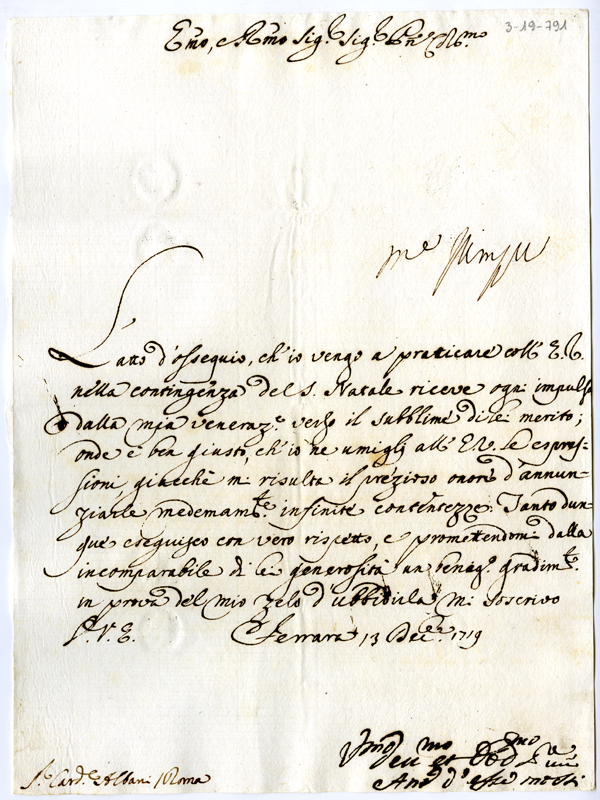 3-19-791
Emo, e Rmo Sig.r Sig.r Pne Col.mo
L'atto d'ossequio, ch'io vengo a praticare coll' E.V.
nella contingenza del S. Natale riceve ogni impulso
dalla mia veneraz.e verso il subblime di lei merito;
onde è ben giusto, ch'io ne umigli all' E.V. le espres-
sioni, giacchè mi risulta il prezioso onore d'annun-
ziarle medemam.te infinite contentezze. Tanto dun-
que eseguisco con vero rispetto, e promettendomi dalla
incomparabile di lei generosità un benig.o gradim.to
in prova del mio zelo d'ubbidirla mi soscrivo
D.V.E. Ferrara 13 Dec.re 1719
S.r Card.e Albani / Roma